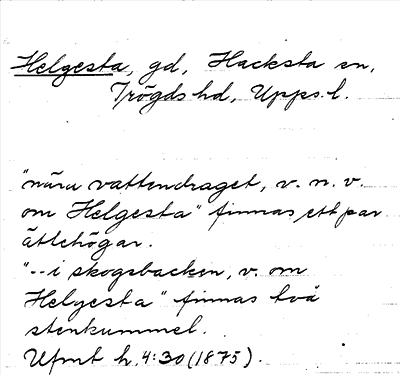 Helgesta, gd, Hacksta sn,
Trögds hd, Upps. l.
"nära vattendraget, v. n. v.
om Helgesta" finnas ett par
ättehögar.
"-- i skogsbacken, v. om
Helgesta" finnas två
stenkummel.
Ufmt h. 4:30 (1875).